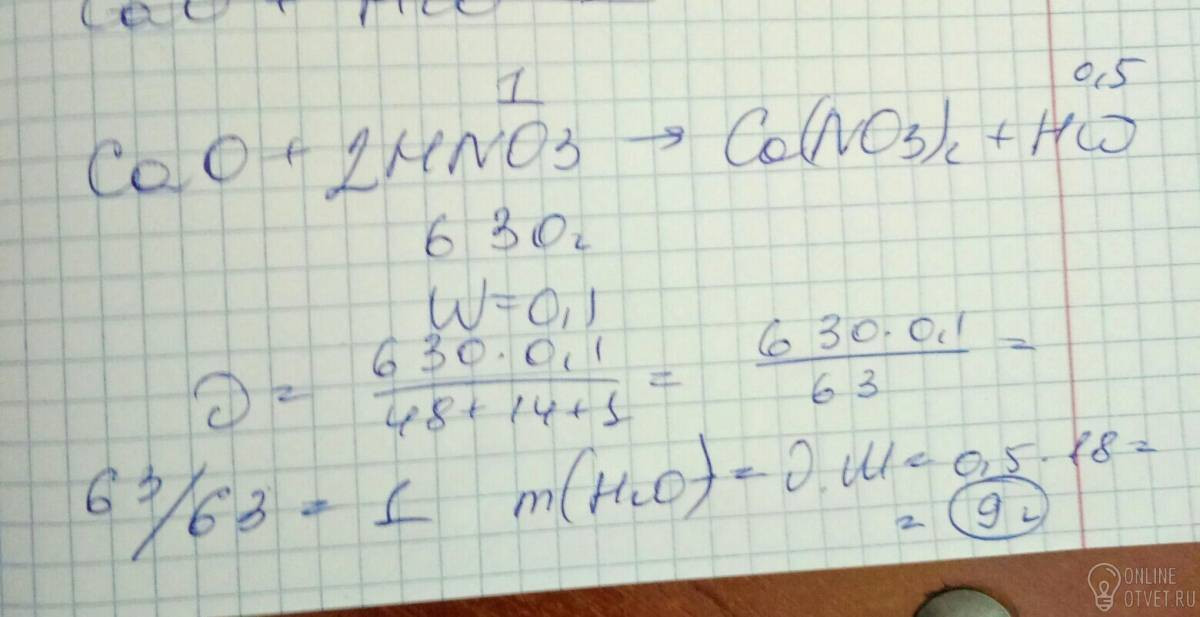 CaO + HCl
1
0,5
CaO + 2HNO3 → Ca(NO3)2 + H2O
630г
W=0,1
υ = 630·0,1 / 48+14+1 = 630·0,1 / 63 =
63/63 = 1 m(H2O) = υ·M = 0,5·18 =
= 9г
ONLINE
OTVET.RU